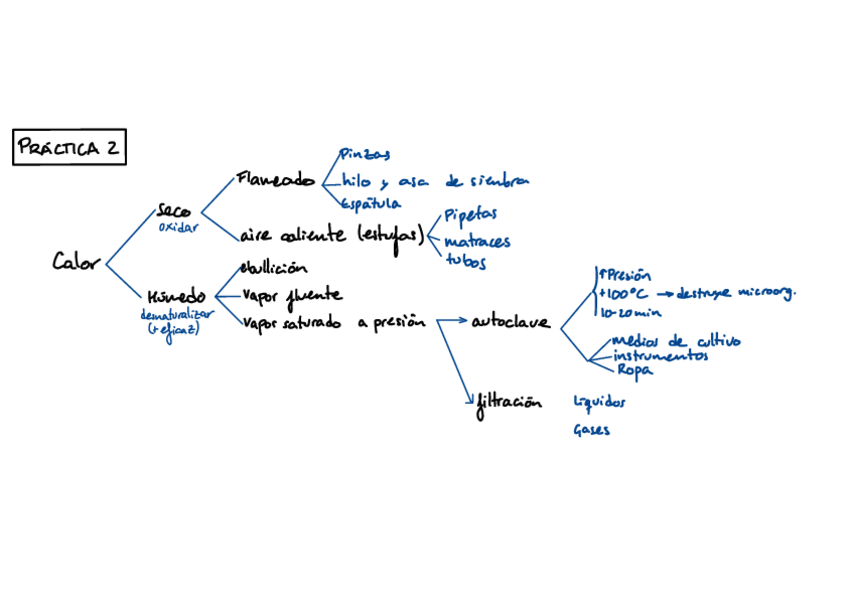 PRÁCTICA 2
Calor
Seco
oxidar
Flameado
Pinzas
hilo y asa de siembra
Espátula
aire caliente (estufas)
Pipetas
matraces
tubos
Húmedo
dematuralizar
(+ eficaz)
ebullición
Vapor fluente
Vapor saturado a presión
autoclave
↑Presión
+100°C → destruye microorg.
10-20min
medios de cultivo
instrumentos
Ropa
filtración
Líquidos
Gases